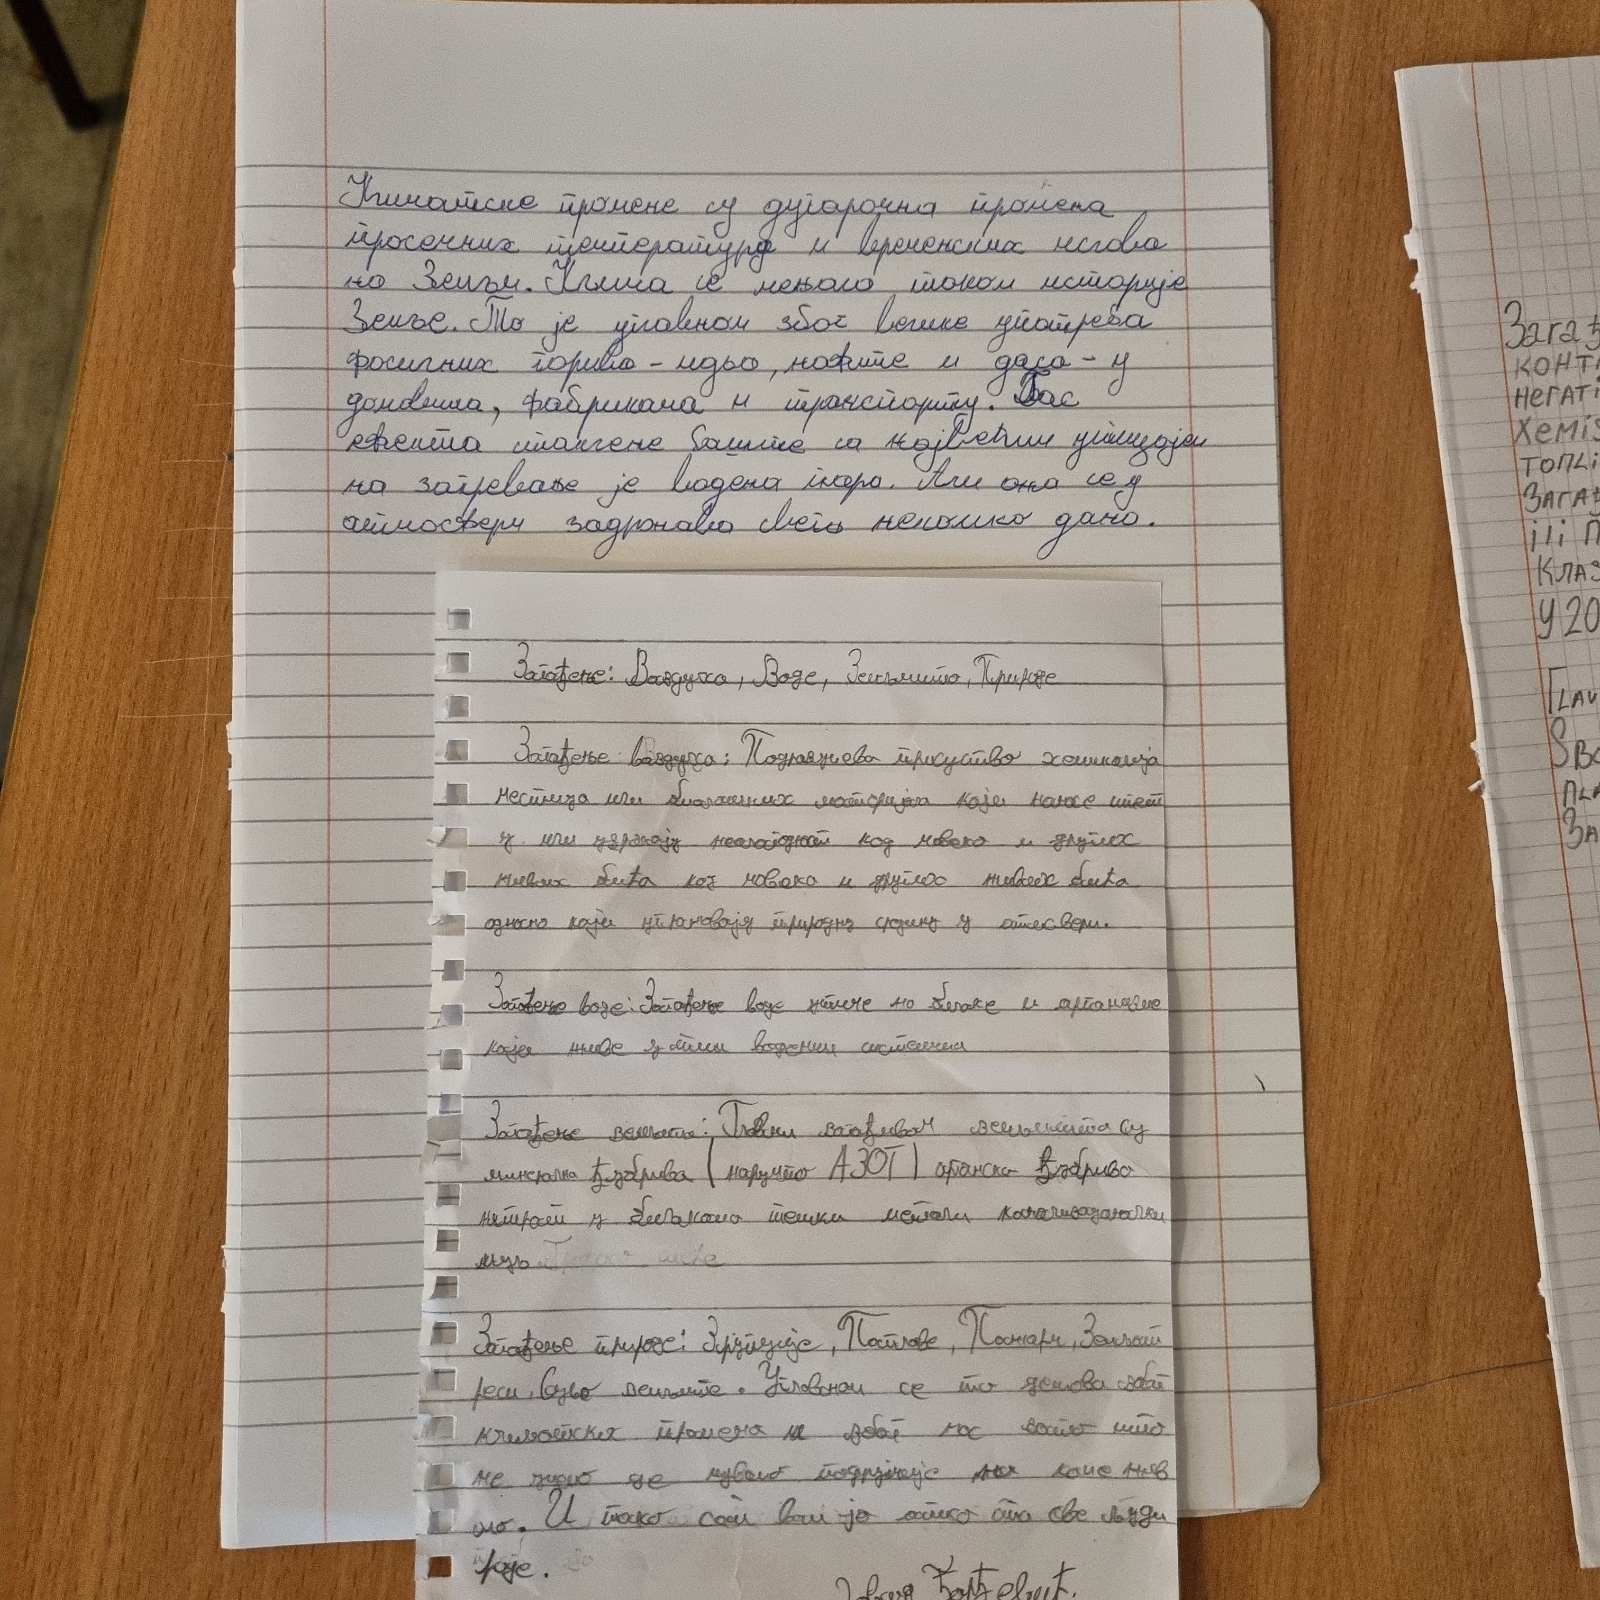 Климатске промене су дугарочна промена
просечних температура и временских услова
на Земљи. Клима се мењала током историје
Земље. То је углавном због велике употреба
фосилних горива - угља, нафте и гаса - у
домовима, фабрикама и транспорту. Гас
ефекта стаклене баште са највећим утицајем
на загревање је водена пара. Али она се у
атмосфери задржава свега неколико дана.
Загађење: Ваздуха, Воде, Земљишта, Природе
Загађење ваздуха: Подразумева присуство хемикалија
честица или биолошких материјала који наносе штет
у или узракују нелагодност код човека и других
живих бића код човека и других живих бића
односно који угрожавају природну средину у атмосфери.
Загађење воде: Загађење воде утиче на биљке и организме
који живе у овим воденим системима
Загађење земљишта: Главни загађивач земљишта су
минерална ђубрива (наручито АЗОТ) органска ђубриво
нитрати у биљкама тешки метали канализациони
муљ
Загађење природе: Ерупције, Поплаве, Пожари, Земљот
реси, земљиште. Углавном се то дешава због
климатских промена и због нас зато што
не знамо да чувамо подручије на коме жив
имо. И тако сам вам ја отко та све људи
раде.
Ђорђевић.
Загађ
КОНТА
НЕГАТІ
ХЕМІS
ТОПLI
ЗАГАЂ
ILI П
КЛАЗ
У 20
ГLAV
SВ
ПLA
ЗА